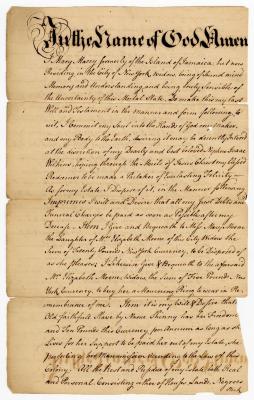 In the Name of God Amen
I Mary Macey formerly of the Island of Jamaica, but now
Residing in the City of New York, widow, being of Sound mind
Memory and Understanding and being truly Sensible of
the Uncertainty of this Mortal State, Do make this my last
Will and Testament in the manner and form following, to
wit, I Commit my Soul into the Hands of God my Maker,
and my Body to the Earth, desiring it may be decently Interred
at the discretion of my Dearly and best beloved Nephew Isaac
hoping through the Merits of Jesus Christ my blessed
Redeemer to be made a Partaker of Everlasting Felicity
As for my Estate, I Dispose of it, in the Manner following
Imprimis I will and Desire that all my just Debts and
Funeral Charges be paid as soon as Possible after my
Decease. Item I give and Bequeath to Miss Mary
the Daughter of Mrs Elizabeth of this City Widow the
Sum of Twenty Pounds New York Currency, to be Disposed of
as she Pleases; Likewise I give & Bequeath to the aforesaid
Mrs Elizabeth Widow, the Sum of Five Pounds New
York Currency, to buy her a Mourning Ring to wear in Re-
membrance of me. Item it is my Will & Desire that
Old faithfull Slave by Name Skinny has her Freedom
and Ten Pounds this Currency, per Annum as long as she
Lives for her Support to be paid her out of my Estate, she
her Manumission According to the Laws of this
Colony. All the Rest and Residue of my Estate, both Real
and Personal Consisting either of Houses Lands, Negroes